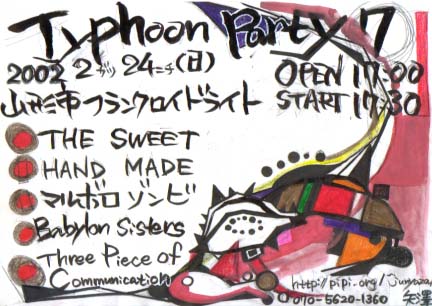 Typhoon Party 7
2002 2ガツ 24ニチ (日) OPEN 17:00
山形市 フランクロイドライト START 17:30
THE SWEET
HAND MADE
マルボロ ゾンビ
Babylon Sisters
Three Piece of
Communication
http://pipi.org/~
070-5620-1360